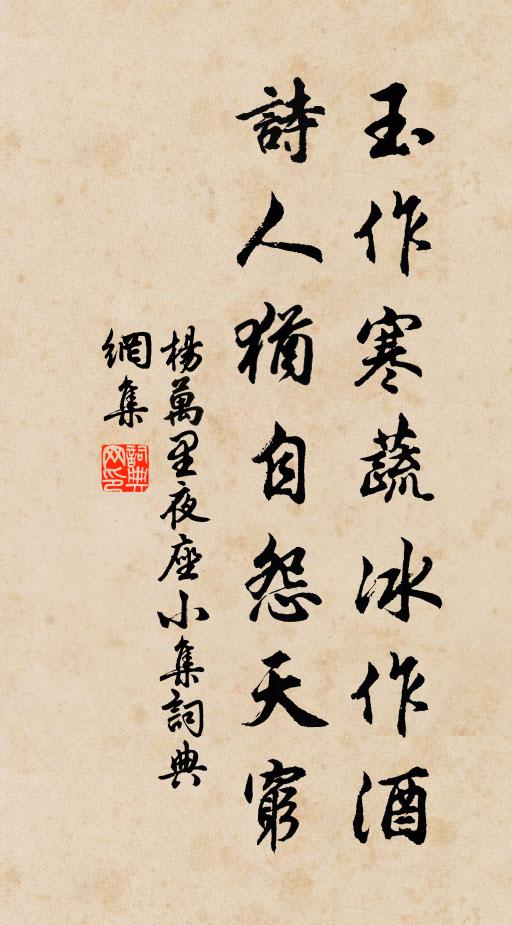 玉作寒蔬冰作酒
詩人猶自怨天窮
楊萬里夜座小集詞典
網集
詞典網印